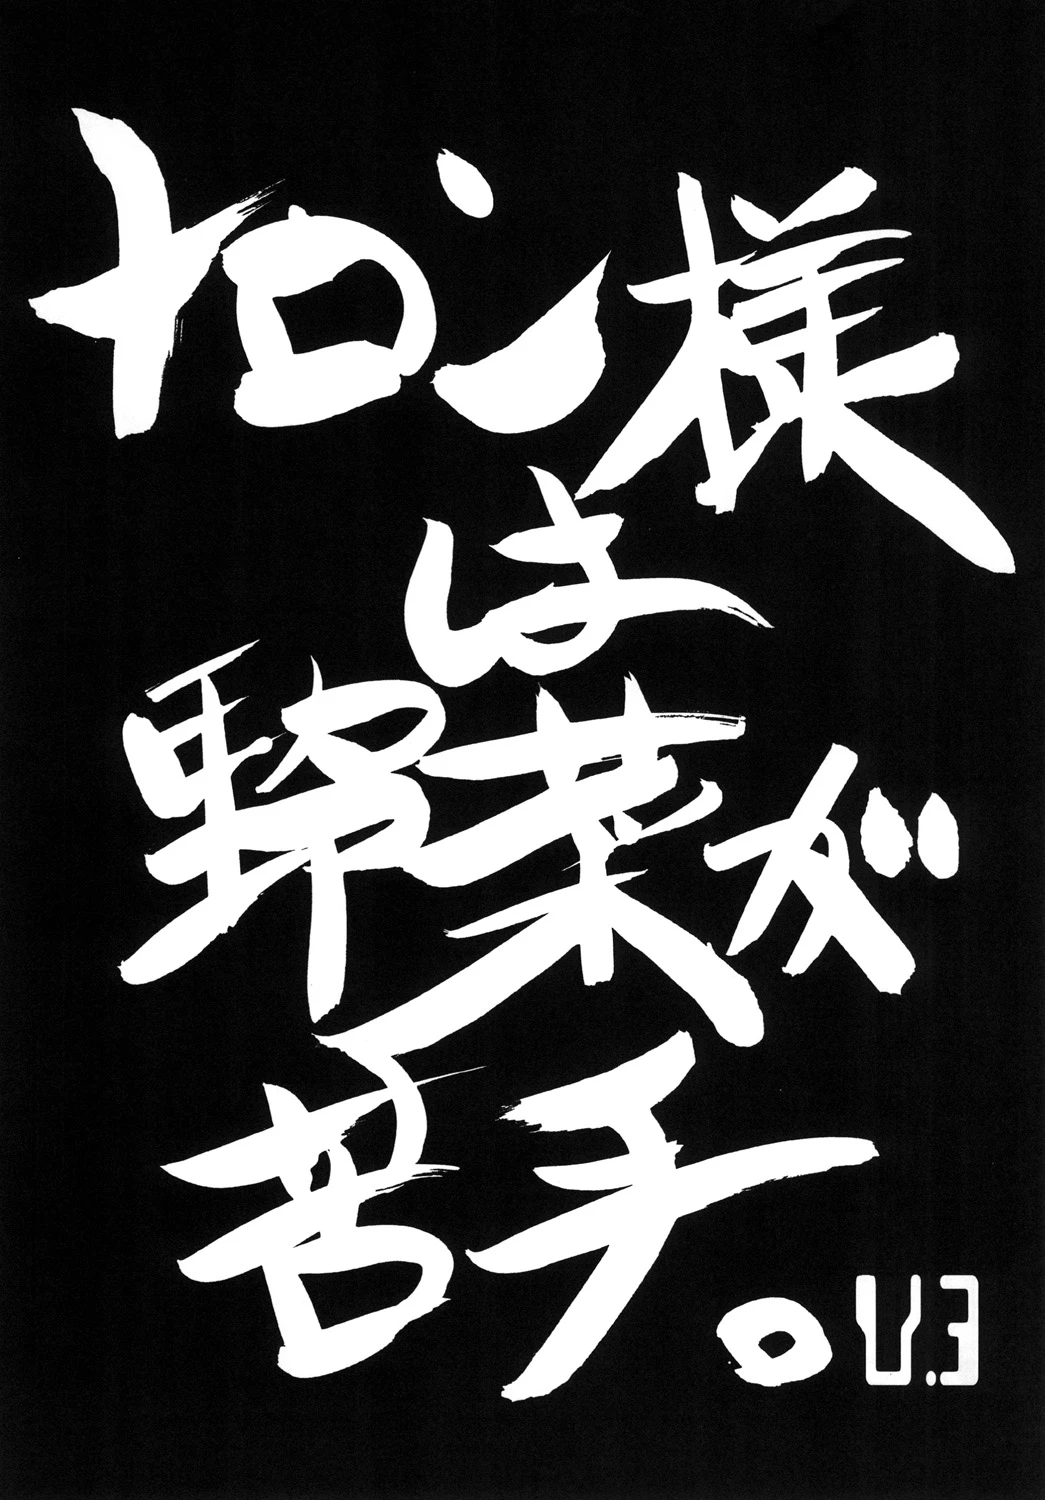 トロン様
は
野菜が
苦手。V.3